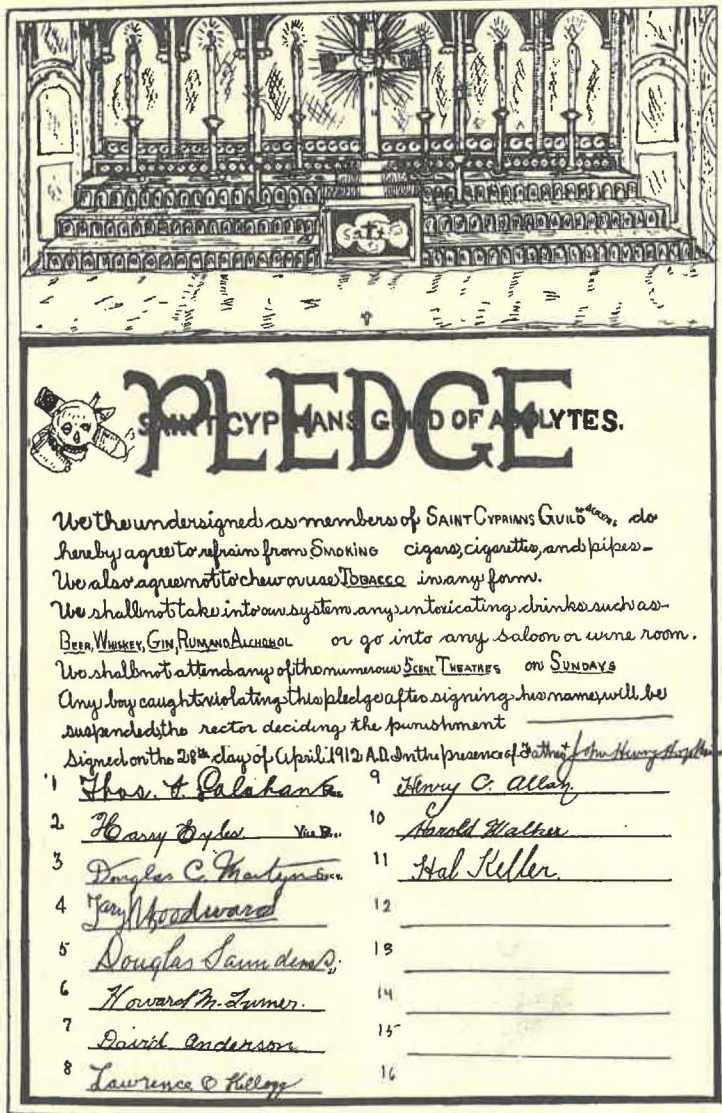 PLEDGE
SAINT CYPRIANS GUILD OF ACOLYTES.
We the undersigned as members of SAINT CYPRIANS GUILD OF ACOLYTES do
hereby agree to refrain from SMOKING cigars, cigarettes, and pipes-
We also agree not to chew or use TOBACCO in any form.
We shall not take into our system any intoxicating drinks such as-
BEER, WHISKEY, GIN, RUM AND ALCHOHOL or go into any saloon or wine room.
We shall not attend any of the numerous 5 CENT THEATRES on SUNDAYS
Any boy caught violating this pledge after signing his name, will be
suspended, the rector deciding the punishment
Signed on the 28th day of April. 1912 A.D. In the presence of Father John Henry Hopkins
1 Thos. Pres.
2 Harry Eyles Vice Pres.
3 Douglas C. Martyn Secy.
4 Woodward
5 Douglas Saunders
6 Howard M. Turner.
7 David Anderson
8 Lawrence O Kellogg
9 Henry C. Allan
10 Harold Walker
11 Hal Keller.
12
13
14
15
16